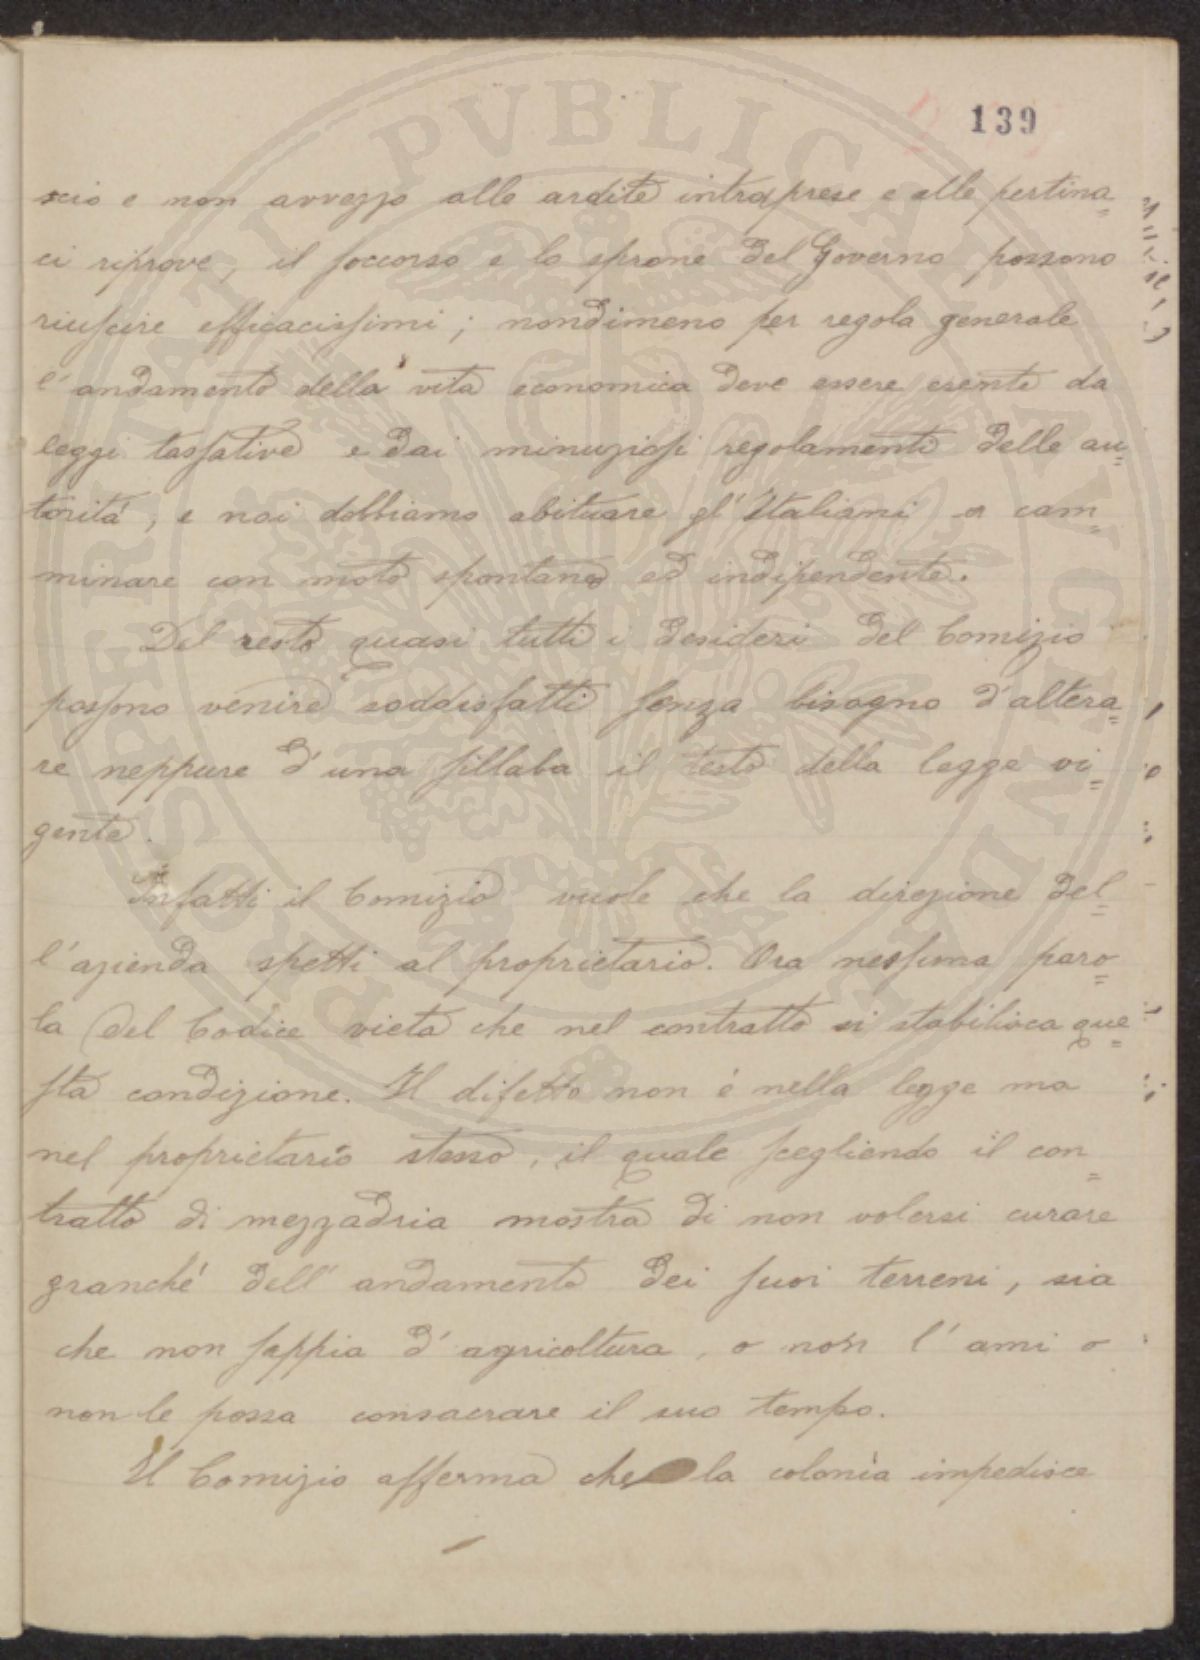 139
scio e non avvezzo alle ardite intraprese e alle pertina=
ci riprove, il soccorso e lo sprone del Governo possono
riuscire efficacissimi; nondimeno per regola generale
l'andamento della vita economica deve essere esente da
leggi tassative e dai minuziosi regolamenti delle au=
torità, e noi dobbiamo abituare gl'Italiani a cam=
minare con moto spontaneo ed indipendente.
Del resto quasi tutti i desideri del Comizio
possono venire soddisfatti senza bisogno d'altera=
re neppure d'una sillaba il testo della legge vi=
gente.
Infatti il Comizio vuole che la direzione del=
l'azienda spetti al proprietario. Ora nessuna paro=
la del Codice vieta che nel contratto si stabilisca que=
sta condizione. Il difetto non è nella legge ma
nel proprietario stesso, il quale scegliendo il con=
tratto di mezzadria mostra di non volersi curare
granché dell'andamento dei suoi terreni, sia
che non sappia d'agricoltura, o non l'ami o
non le possa consacrare il suo tempo.
Il Comizio afferma che la colonìa impedisce
PROSPERITATI PVBLICAE AVGENDAE